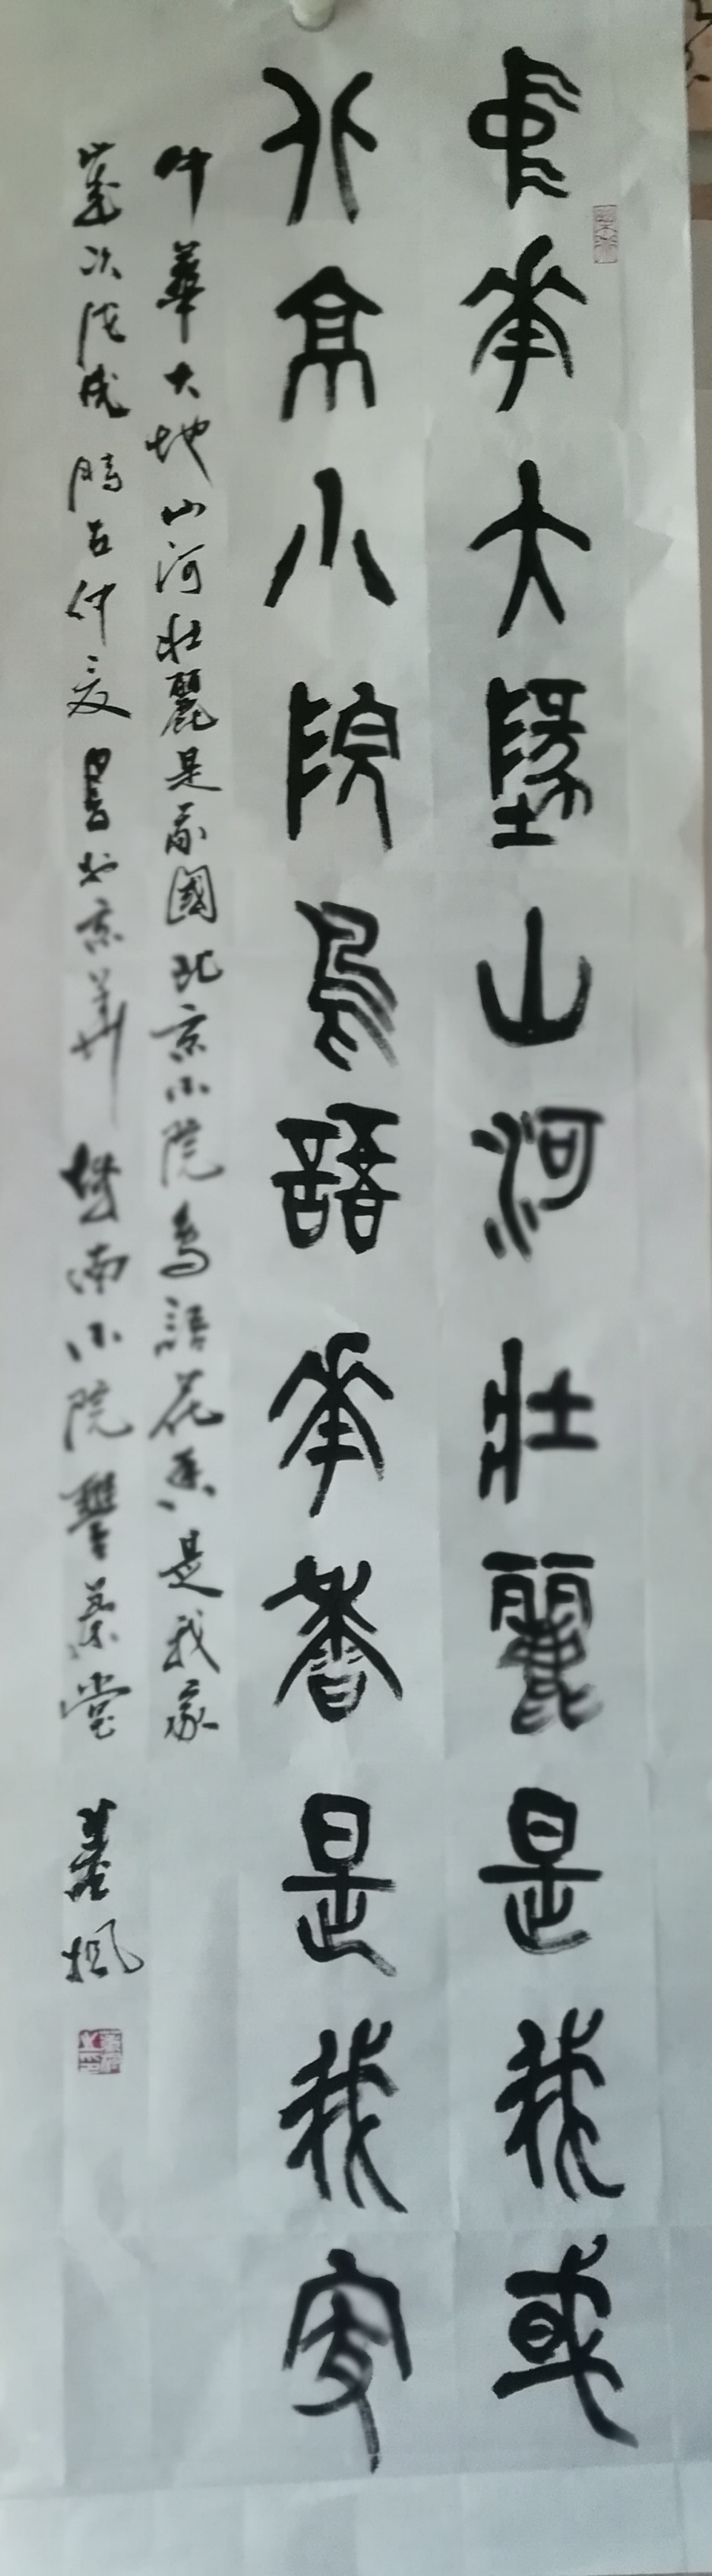 中華大地山河壯麗是我或
北京小院鳥語華香是我家
中華大地山河壯麗是我國北京小院鳥語花香是我家
歲次戊戌時在仲夏書於京華城南小院